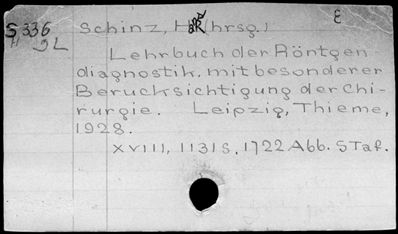 S 336 Schinz, H R (hrsg.) E
H
JL
Lehrbuch der Röntgen
diagnostik, mit besonderer
Berucksichtigung der Chi-
rurgie. Leipzig, Thieme,
1928.
XVIII, 1131 S. 1722 Abb. 5 Taf.